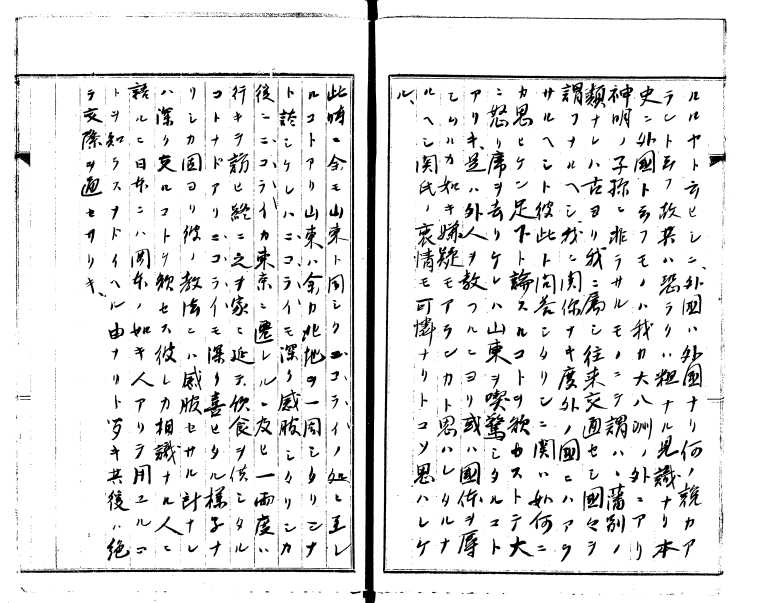 ルルヤト云ヒシニ、外國ハ外國ナリ何ノ説カア
ラント云フ故其ハ恐ラクハ粗ナル見識ナリ本
史ニ外國ト云フモノハ我カ大八洲ノ外ニアリ
神明ノ子孫ニ非ラサルモノニテ謂ハヽ蕃別ノ
類ナレハ古ヨリ我ニ屬シ往来交通セシ國々ヲ
謂フナルヘシ我ニ関係ナキ度外ノ國ニハアラ
サルヘシト彼此ト問答シタリシニ関ハ如何ニ
カ思ヒケン足下ト論スルコトヲ欲カストテ大
ニ怒リ席ヲ去リケレハ山東ヲ喫驚シタルコト
アリキ、是ハ外人ヲ教フルニヨリ或ハ國体ヲ辱
シムルカ如キ嫌疑モアランカト思ハレタルナ
ルヘシ関氏ノ衷情モ可憐ナリトコソ思ハレケ
ル、
此時ニ余モ山東ト同シクニコライノ処ニ至レ
ルコトアリ山東ハ余カ北地ヲ一周シタリシナ
ト誇シケレハニコライモ深ク感服シタリシカ
後ニニコライカ東京ニ遷レルニ及ヒ一両度ハ
行キヲ訪ヒ終ニ之ヲ家ニ延テ飲食ヲ供シタル
コトナドアリニコライモ深ク喜ヒタル様子ナ
リシカ固ヨリ彼ノ教法ニハ感服セサル計ナレ
ハ深ク交ルコトヲ欲セス彼レカ相識ナル人ニ
語ルニ日本ニハ岡本ノ如キ人アリテ用ユルコ
トヲ知ラスナドイヘル由ナリト
其後ハ絶
テ交際ヲ通セサリキ、